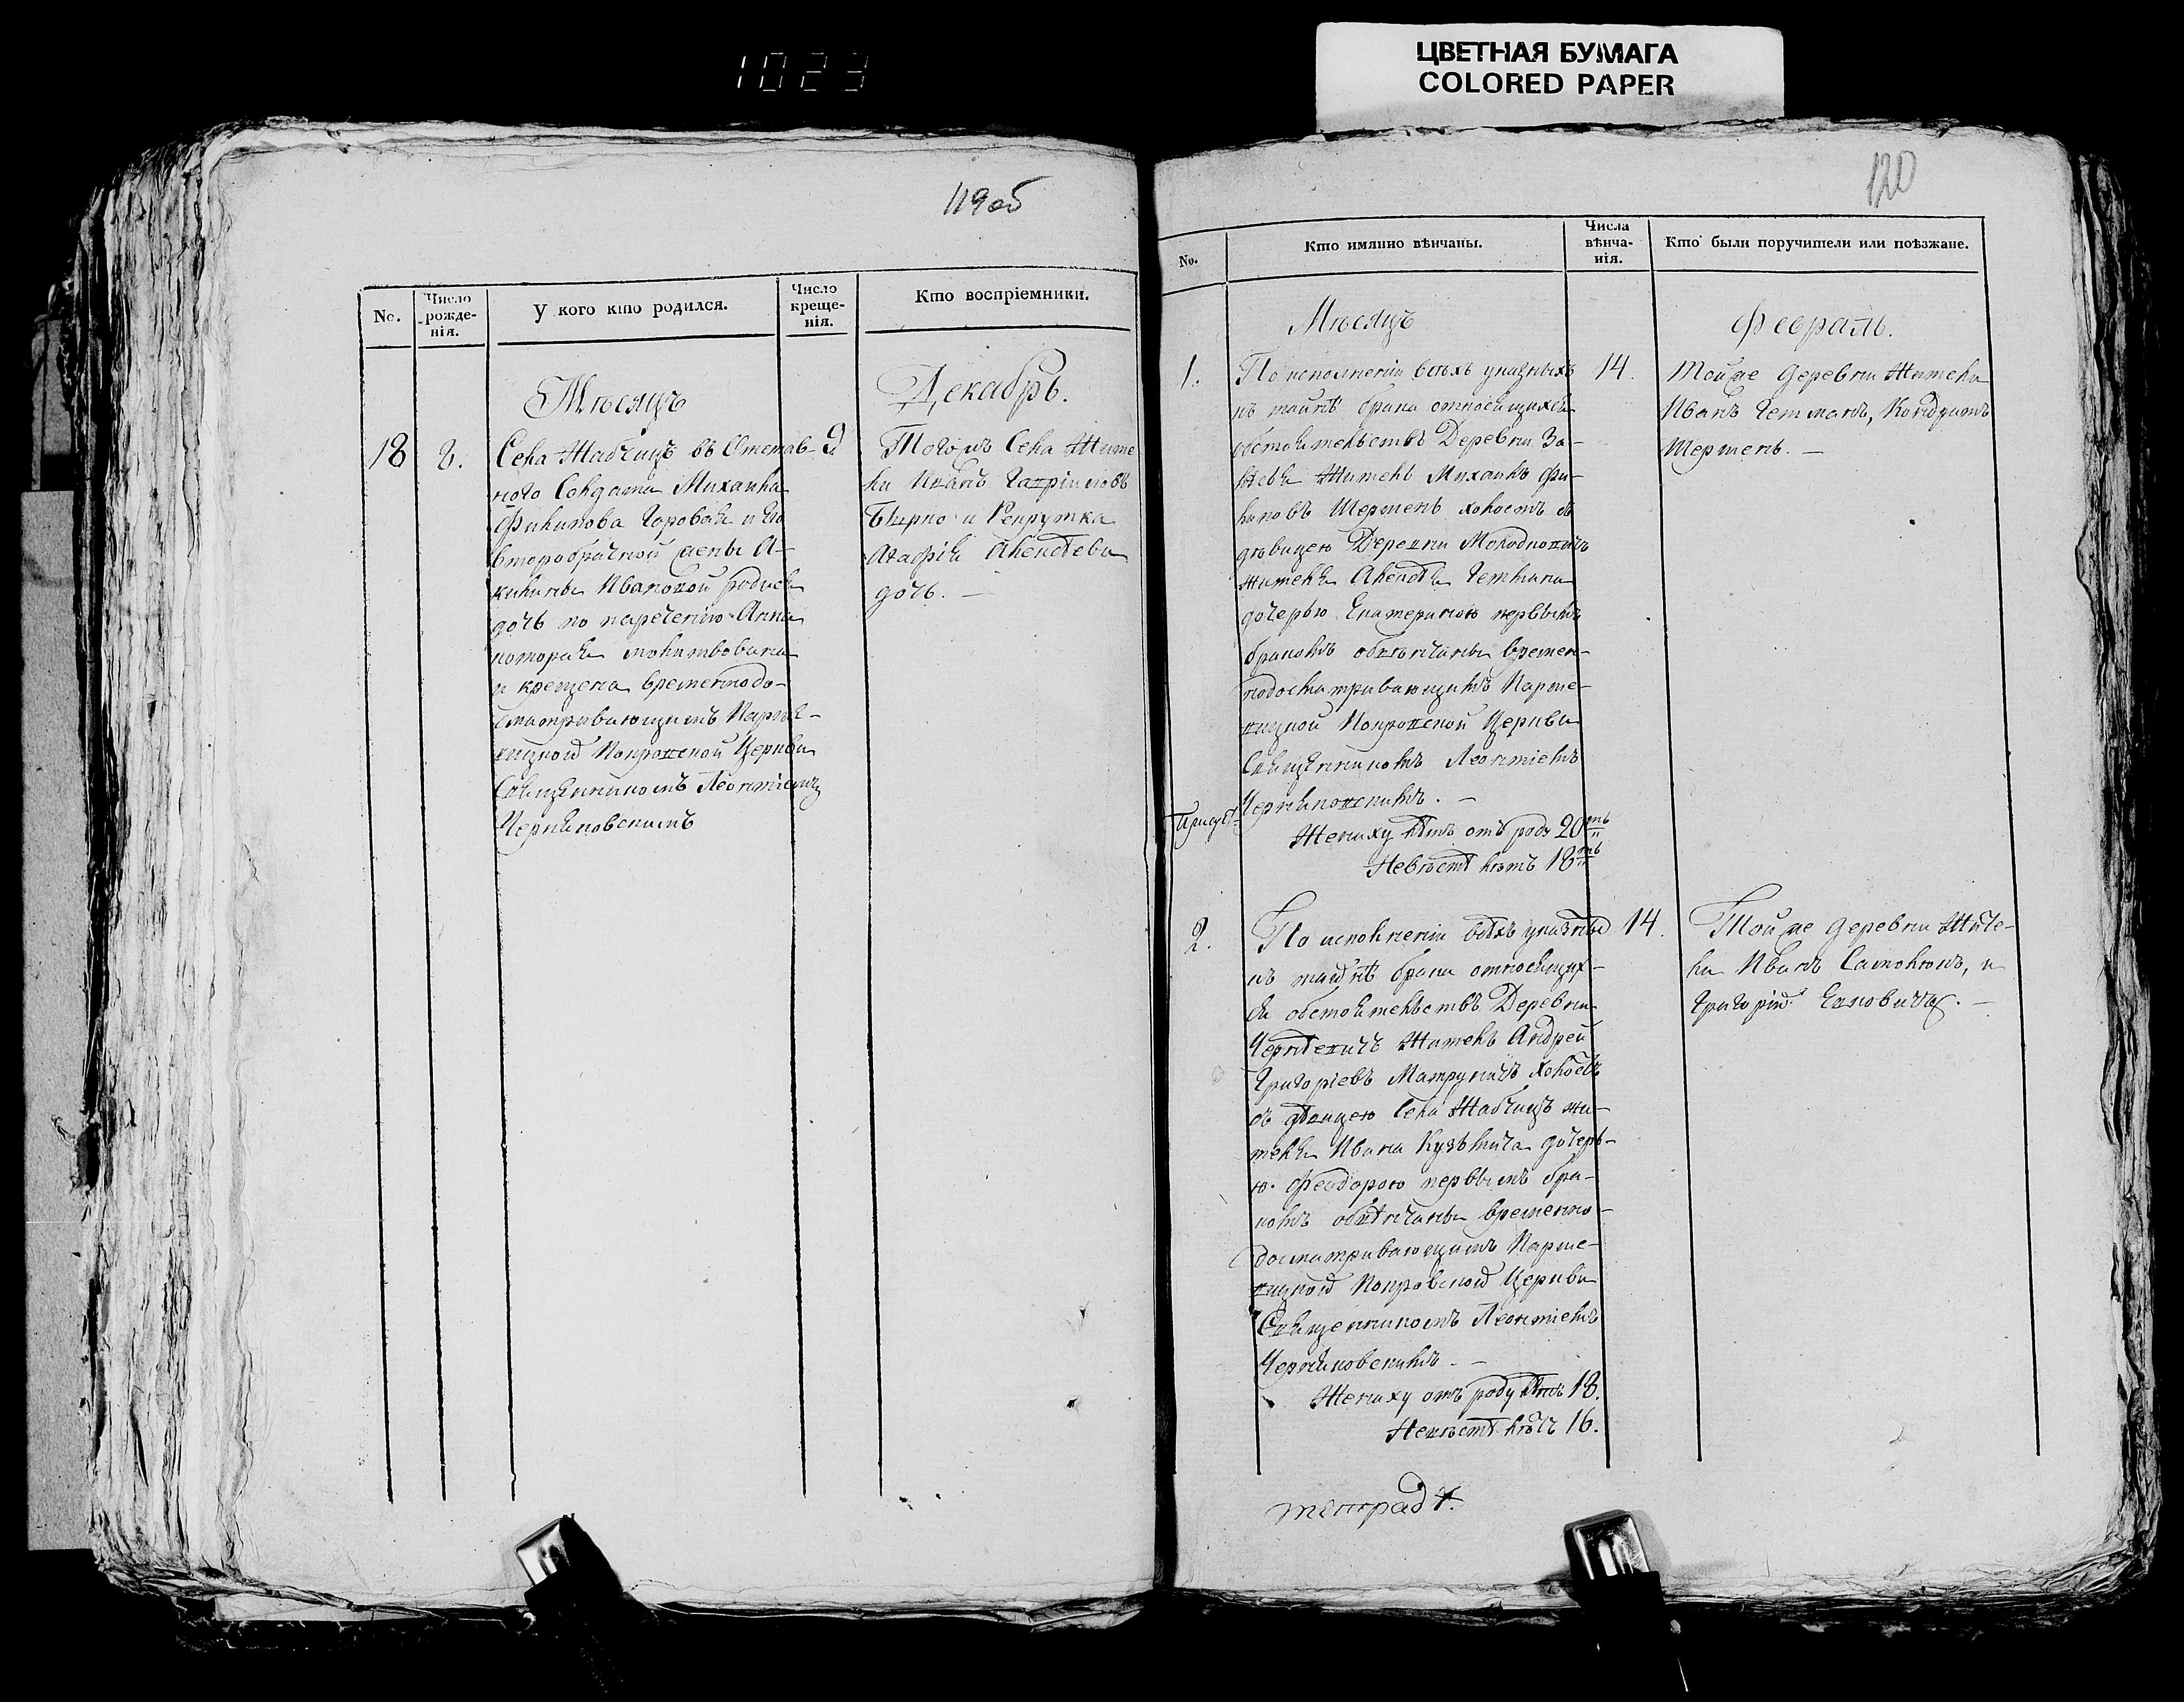 1023
ЦВЕТНАЯ БУМАГА
COLORED PAPER
119 об
No.
Число рожде-нія.
У кого кто родился.
Число креще-нія.
Кто воспріемники.
Мѣсяцъ
Декабрь.
18
8.
9
Села Жабчицъ въ Отстав-
ного Солдата Михаила
Филипова и его
второбрачной жены А-
килины Ивановой родися
дочь по наречению Анна
которая молитвована
и крещена временнодо-
сматривающимъ Парше-
вицкой Покровской Церкви
Священникомъ Леонтіемъ
Черняковскимъ
Тогожъ Села Жите
ли Иванъ Гавріиловъ
и Рекрутка
Агафія Алексѣева
дочь. —
120
No.
Кто имянно вѣнчаны.
Числа вѣнча-нія.
Кто были поручители или поѣзжане.
Мѣсяцъ
Февраль.
1.
14.
По исполненіи всѣхъ указныхъ
къ тайнѣ брака относящихся
обстоятельствъ Деревни За-
Житель Михаилъ Фи-
липовъ Шермень холостъ съ
дѣвицею Деревни
жителя Алексѣя Гетмана
дочерью Екатериною первымъ
бракомъ обвѣнчаны времен-
нодосматривающимъ Парше-
вицкой Покровской Церкви
Священникомъ Леонтіемъ
Черняковскимъ. —
Жениху лѣтъ отъ роду 20ть
Невѣстѣ лѣтъ 18ть
Тойже деревни Жители
Иванъ Гетманъ, Кондратъ
Шермень. —
2.
14.
По исполненіи всѣхъ указныхъ
къ тайнѣ брака относящих-
ся обстоятельствъ Деревни
Чернѣевичъ Житель Андрей
Григоріевъ Матруничъ Холостъ
съ дѣвицею Села Жабчицъ жи-
теля Ивана Кузьмича дочерь-
ю Феодорою первымъ бра-
комъ обвѣнчаны временно-
досматривающимъ Парше-
вицкой Покровской Церкви
Священникомъ Леонтіемъ
Черняковскимъ. —
Жениху отъ роду лѣтъ 18.
Невѣстѣ лѣтъ 16.
Тойже деревни Жите-
ли Иванъ, и
Григорій. —